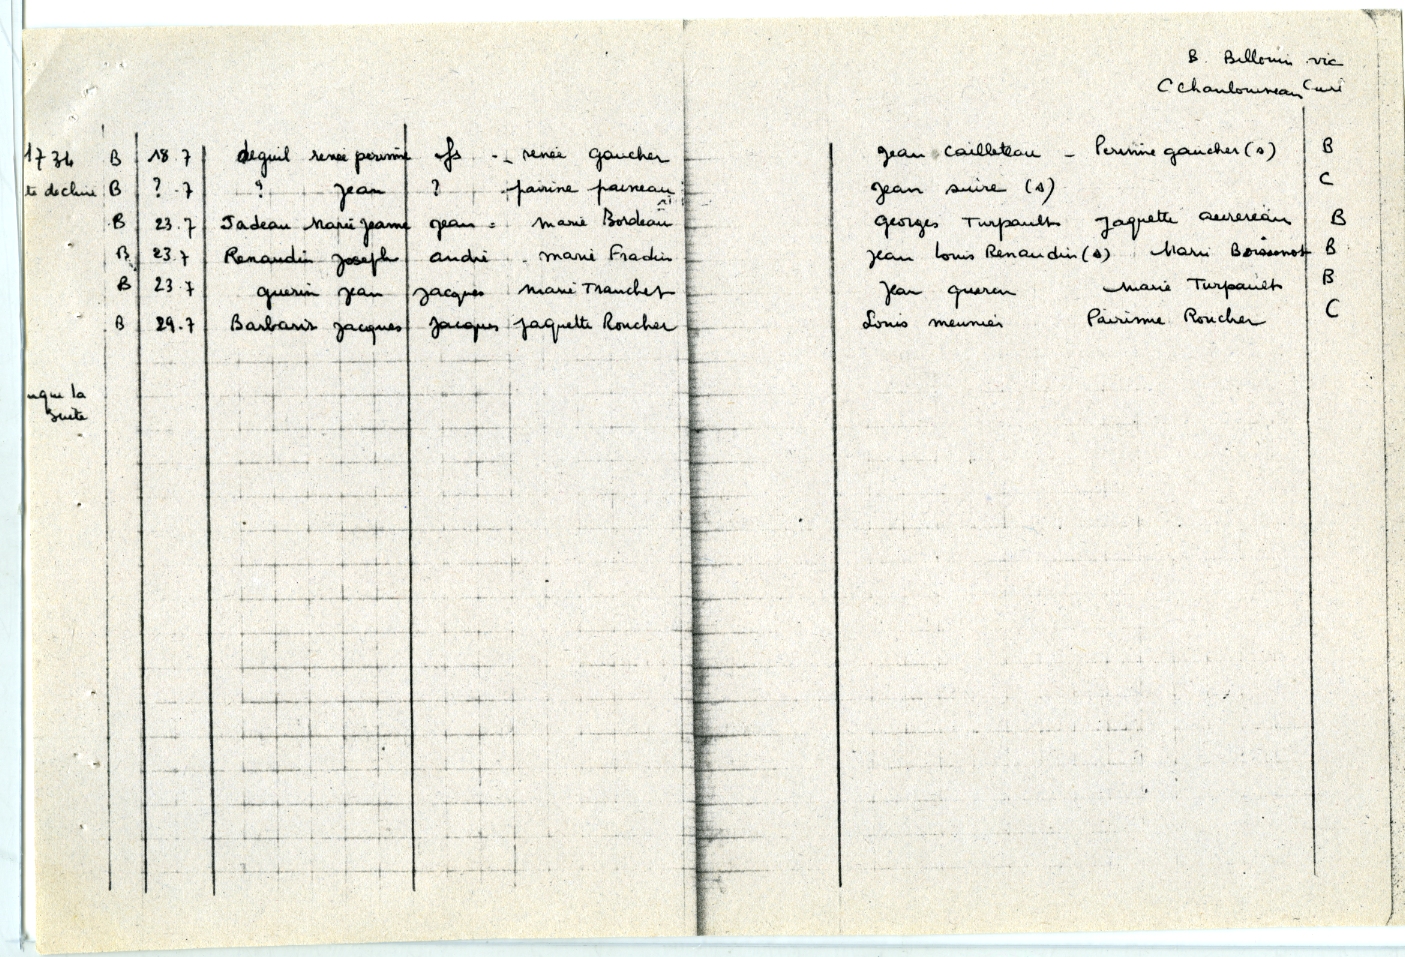 B. Billouin vic
C Chauloumeau Curé
1734 B 18.7 deguil renée perinne fs - renée gaucher Jean Cailleteau - Perinne gaucher (s) B
te dechiré B ? .7 ? Jean ? parine paineau Jean suire (s) C
B 23.7 Jadeau Marie Jeanne Jean = marie Bordeau Georges Turpault Jaquette B
B 23.7 Renaudin Joseph andré - marie Fradin Jean Louis Renaudin (s) Marie Boissinot B
B 23.7 guerin Jean Jacques Marie Tranchet Jean guerin Marie Turpault B
B 29.7 Barbarit Jacques Jacques Jaquette Roucher Louis meunier Roucher C
nque la
suite